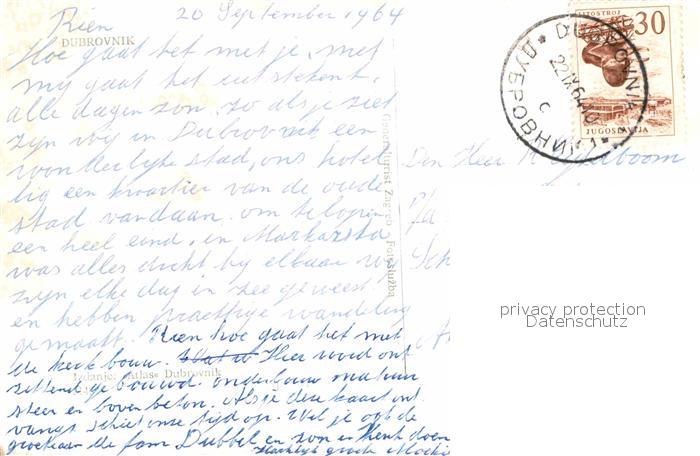 Rien 20 September 1964
DUBROVNIK
Hoe gaat het met je, met
my gaat het uitstekent.
alle dagen zon. zo als je ziet
zyn wy in Dubrovnik een
wonderlyke stad, ons hotel
lig een kwartier van de oude
stad vandaan. om te lopen
een heel eind. in Markarska
was alles dicht by elkaar wy
zyn elke dag in zee geweest
en hebben prachtige wandeling
gemaakt. Rien hoe gaat het met
de kerk bouw. Hier word ont
zettend gebouwd. onderbouw natuur
steen en boven beton. Als je deze kaart ont
vangt schiet onze tijd op. Wil je ook de
groeten aan de fam Dubbel en zoon en Henk doen
Hartelyk groete
Izdanje: »Atlas« Dubrovnik
Generalturist Zagreb Fotoslužba
Den Heer
JUGOSLAVIJA
30
DUBROVNIK
ДУБРОВНИК 1
22.IX.64-10
c
privacy protection
Datenschutz